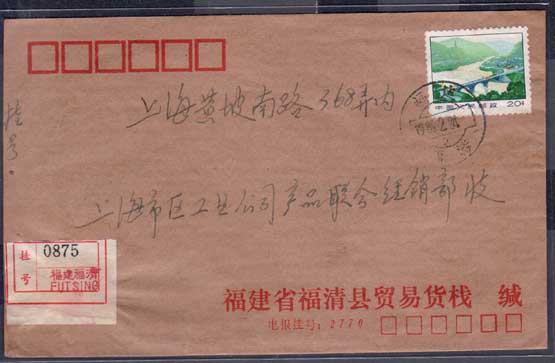 中国人民邮政 20分
挂号
上海黄坡南路368弄内
上海市区工业公司产品联合经销部收
挂号 0875
福建福清
FUTSING
福建省福清县贸易货栈 缄
电报挂号：2770